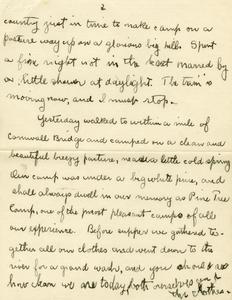 2
country just in time to make camp on a
pasture way up on a glorious big hill. Spent
a fine night not in the least marred by
a little shower at daylight. The train is
moving now, and I must stop.
Yesterday walked to within a mile of
Cornwall Bridge and camped on a clean and
beautiful breezy pasture, near a little cold spring
Our camp was under a big white pine, and
shall always dwell in our memory as Pine Tree
Camp, one of the most pleasant camps of all
our experience. Before supper we gathered to-
gether all our clothes and went down to the
river for a grand wash, and you should see
how clean we are today, both ourselves and
our clothes.